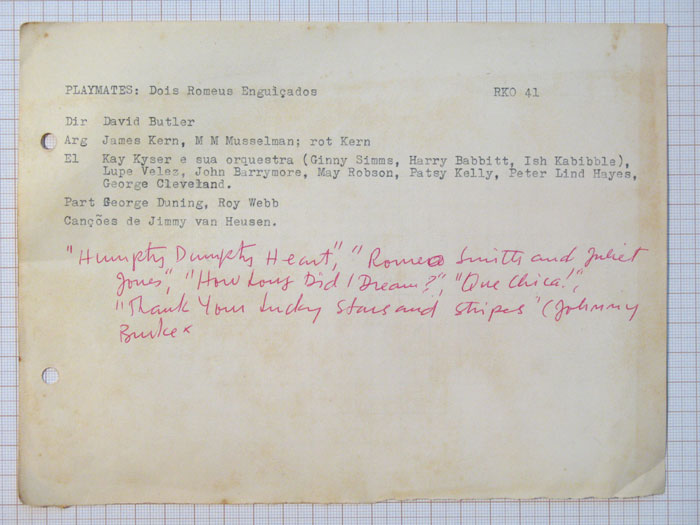 PLAYMATES: Dois Romeus Enguiçados RKO 41
Dir David Butler
Arg James Kern, M M Musselman; rot Kern
El Kay Kyser e sua orquestra (Ginny Simms, Harry Babbitt, Ish Kabibble),
Lupe Velez, John Barrymore, May Robson, Patsy Kelly, Peter Lind Hayes,
George Cleveland.
Part George Duning, Roy Webb
Canções de Jimmy van Heusen.
"Humpty Dumpty Heart", "Romeo Smith and Juliet
Jones", "How Long Did I Dream?", "Que Chica!",
"Thank Your Lucky Stars and Stripes" (Johnny
Burke